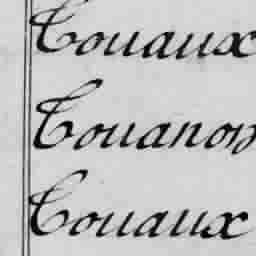 Touaux
Touanon
Touaux